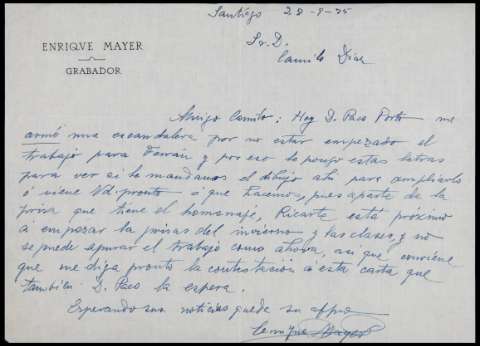 Santiago 28-9-35
ENRIQVE MAYER
GRABADOR
Sr. D.
Camilo Díaz
Amigo Camilo: Hoy D. Paco Porto me
armó una escandalera por no estar empezado el
trabajo para y por eso le pongo estas letras
para ver si le mandamos el dibujo ahí para ampliarlo
ó viene Vd. pronto ó que hacemos, pues aparte de la
prisa que tiene el homenaje, Ricarte está próximo
á empezar la prisas del invierno y las clases, y no
se puede apurar el trabajo como ahora, así que conviene
que me diga pronto la contestación a esta carta que
también D. Paco la espera.
Esperando sus noticias queda su affmo
Enrique Mayer